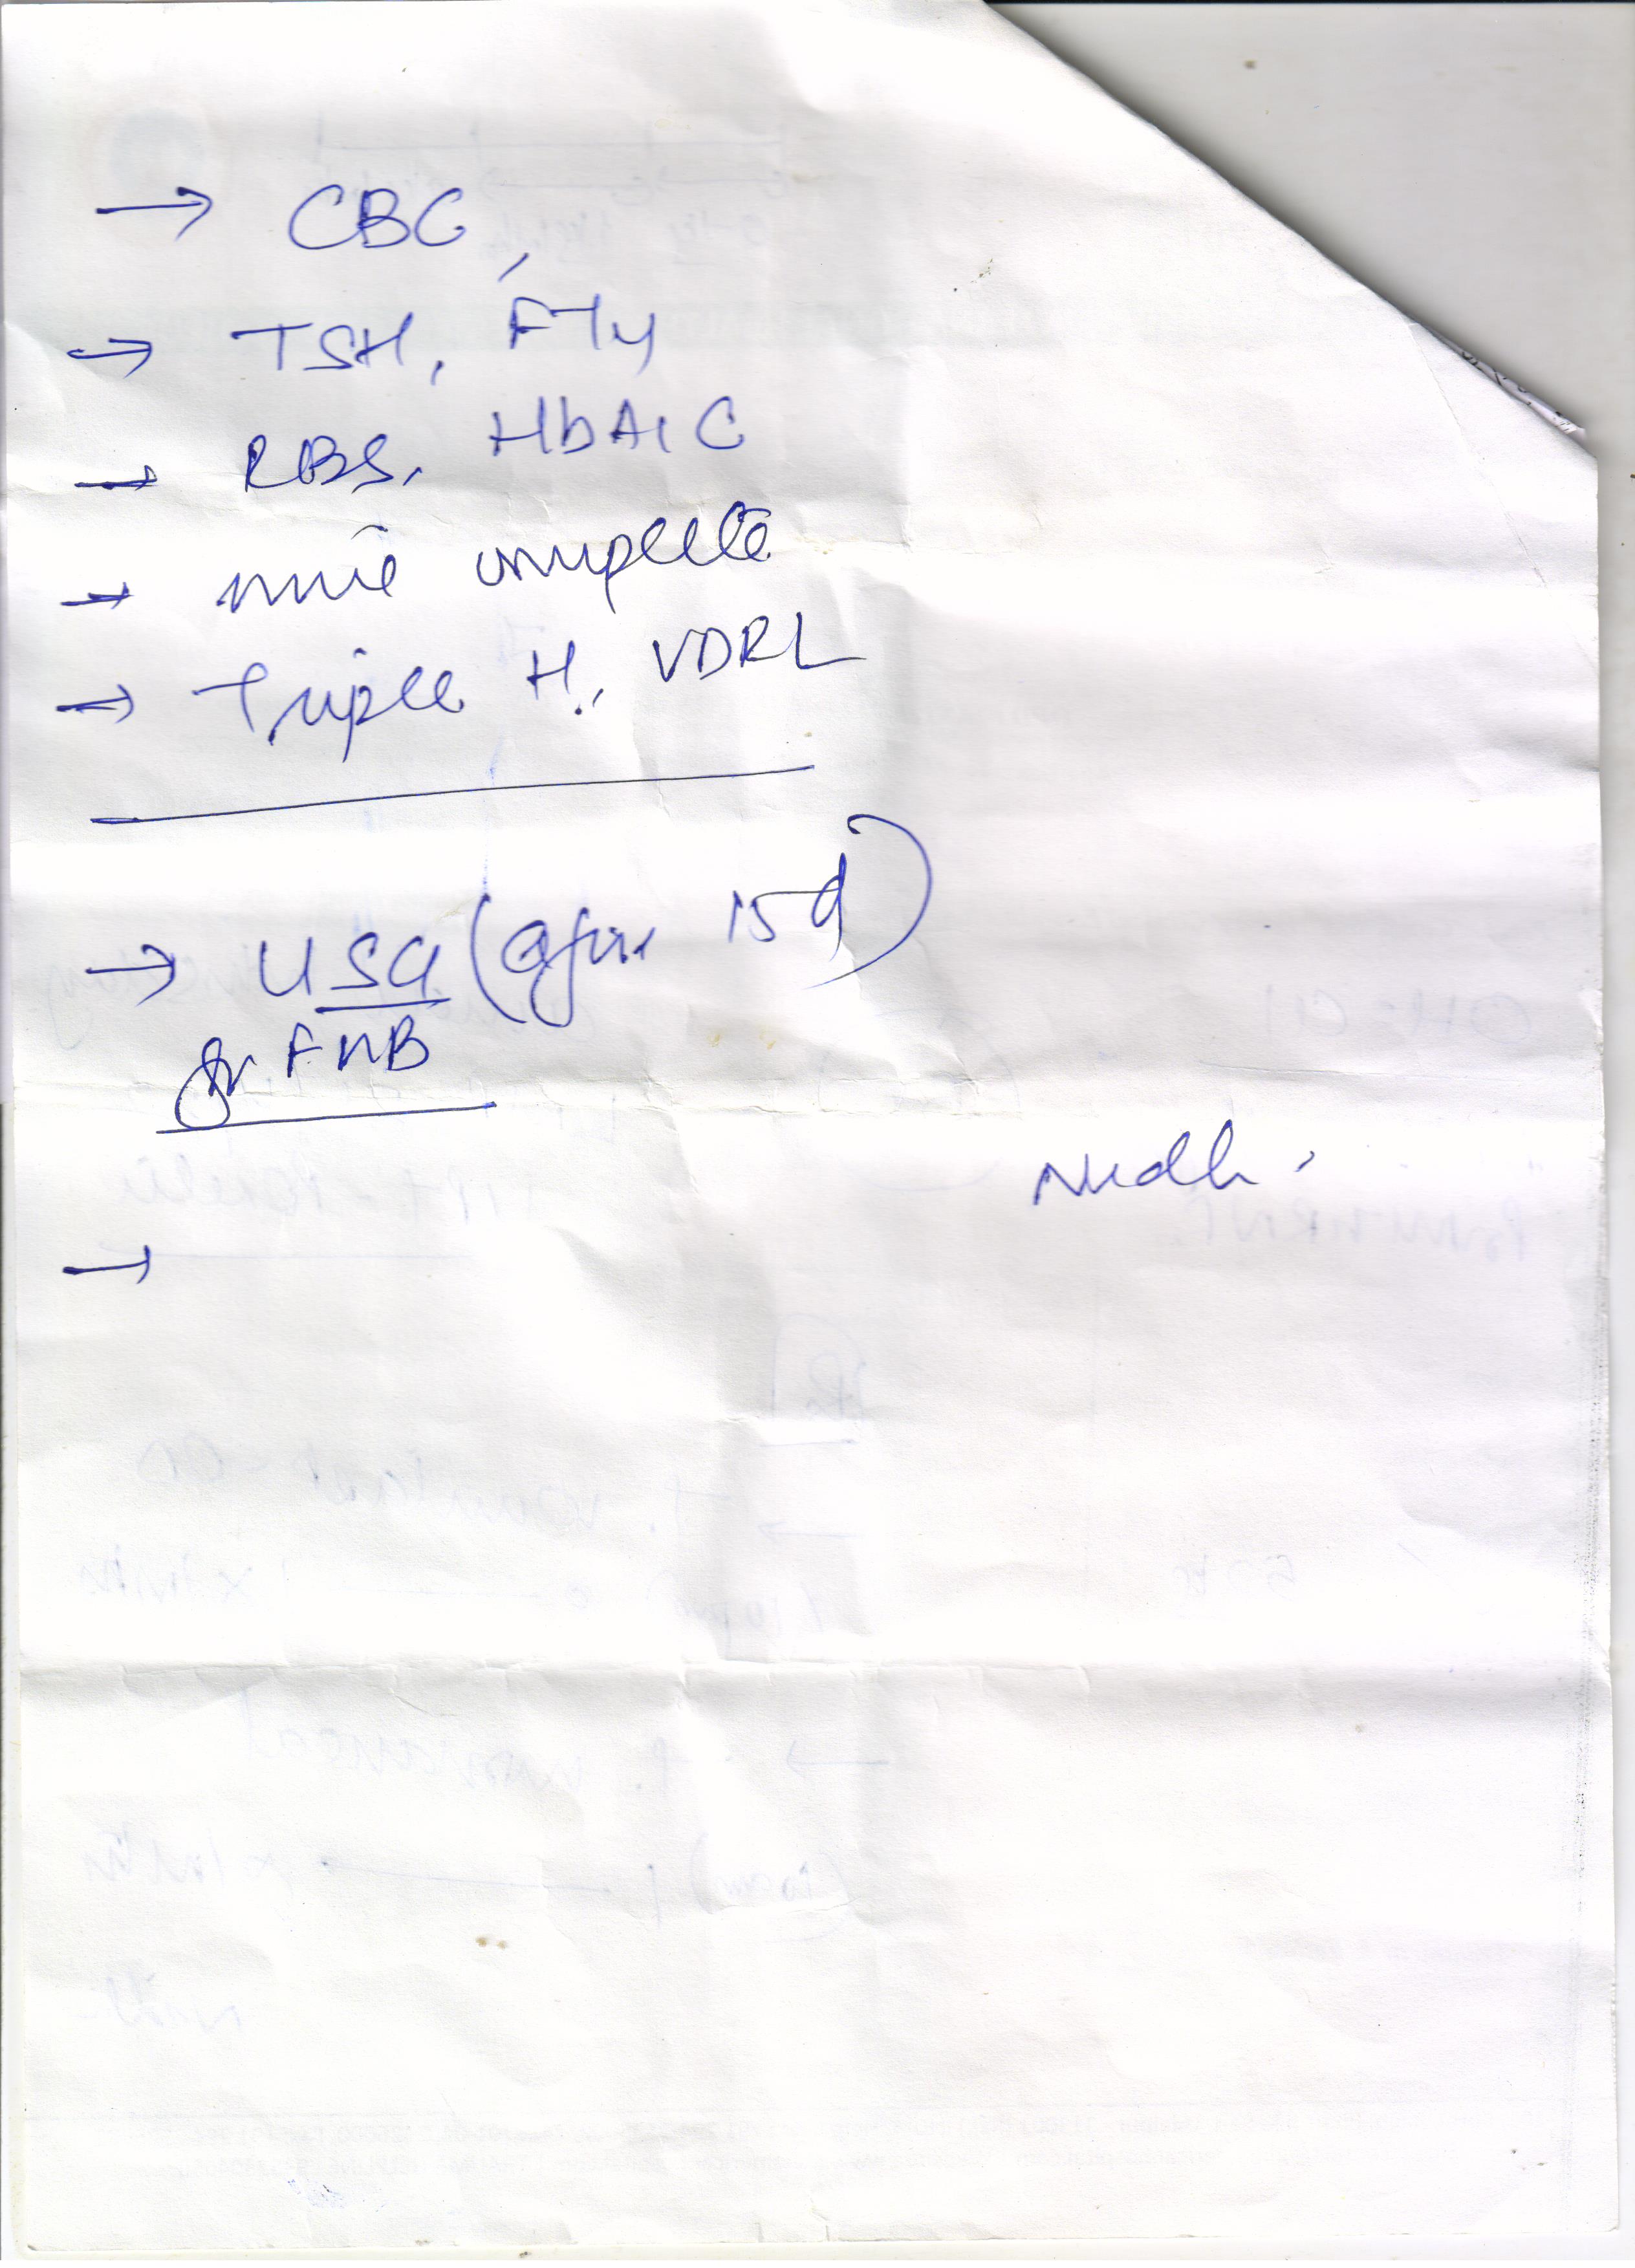 → CBC,
→ TSH, FT4
→ RBS, HbA1C
→ urine complete
→ Triple H, VDRL
→ USG (after 15d)
for FWB
Nidhi
→